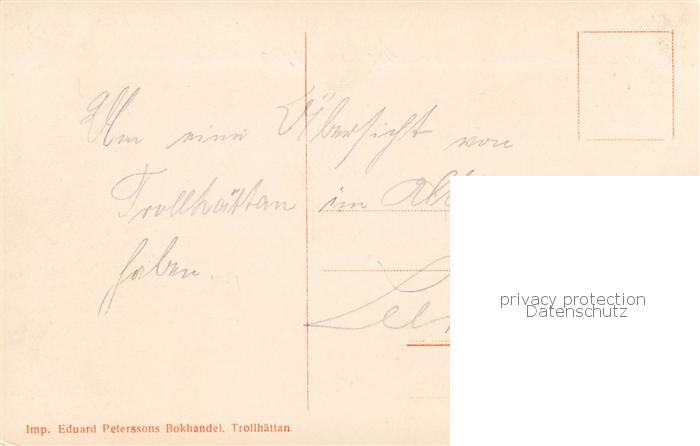 Um eine Übersicht von
Trollhättan im
haben.
privacy protection
Datenschutz
Imp. Eduard Peterssons Bokhandel. Trollhättan.